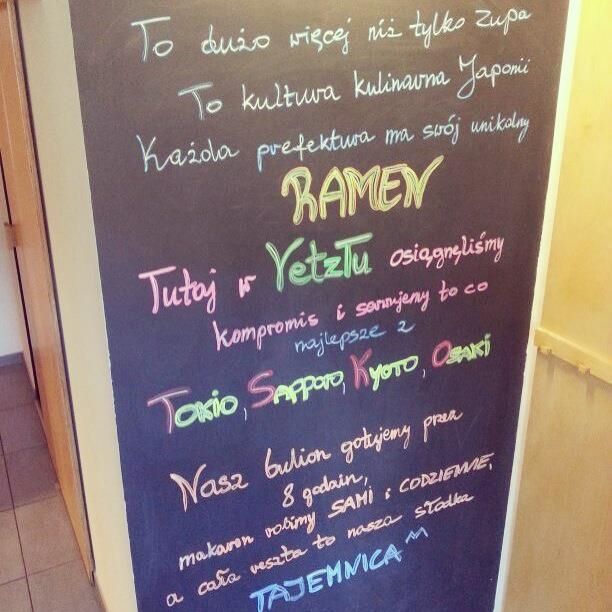 To dużo więcej niż tylko zupa
To kultura kulinarna Japonii
Każda prefektura ma swój unikalny
RAMEN
Tutaj w VetzTu osiągnęliśmy
kompromis i serwujemy to co
najlepsze z
TOKIO, SAPPORO, KYOTO, OSAKI
Nasz bulion gotujemy przez
8 godzin,
makaron robimy SAMI i CODZIENNIE,
a cała reszta to nasza słodka
TAJEMNICA ^^